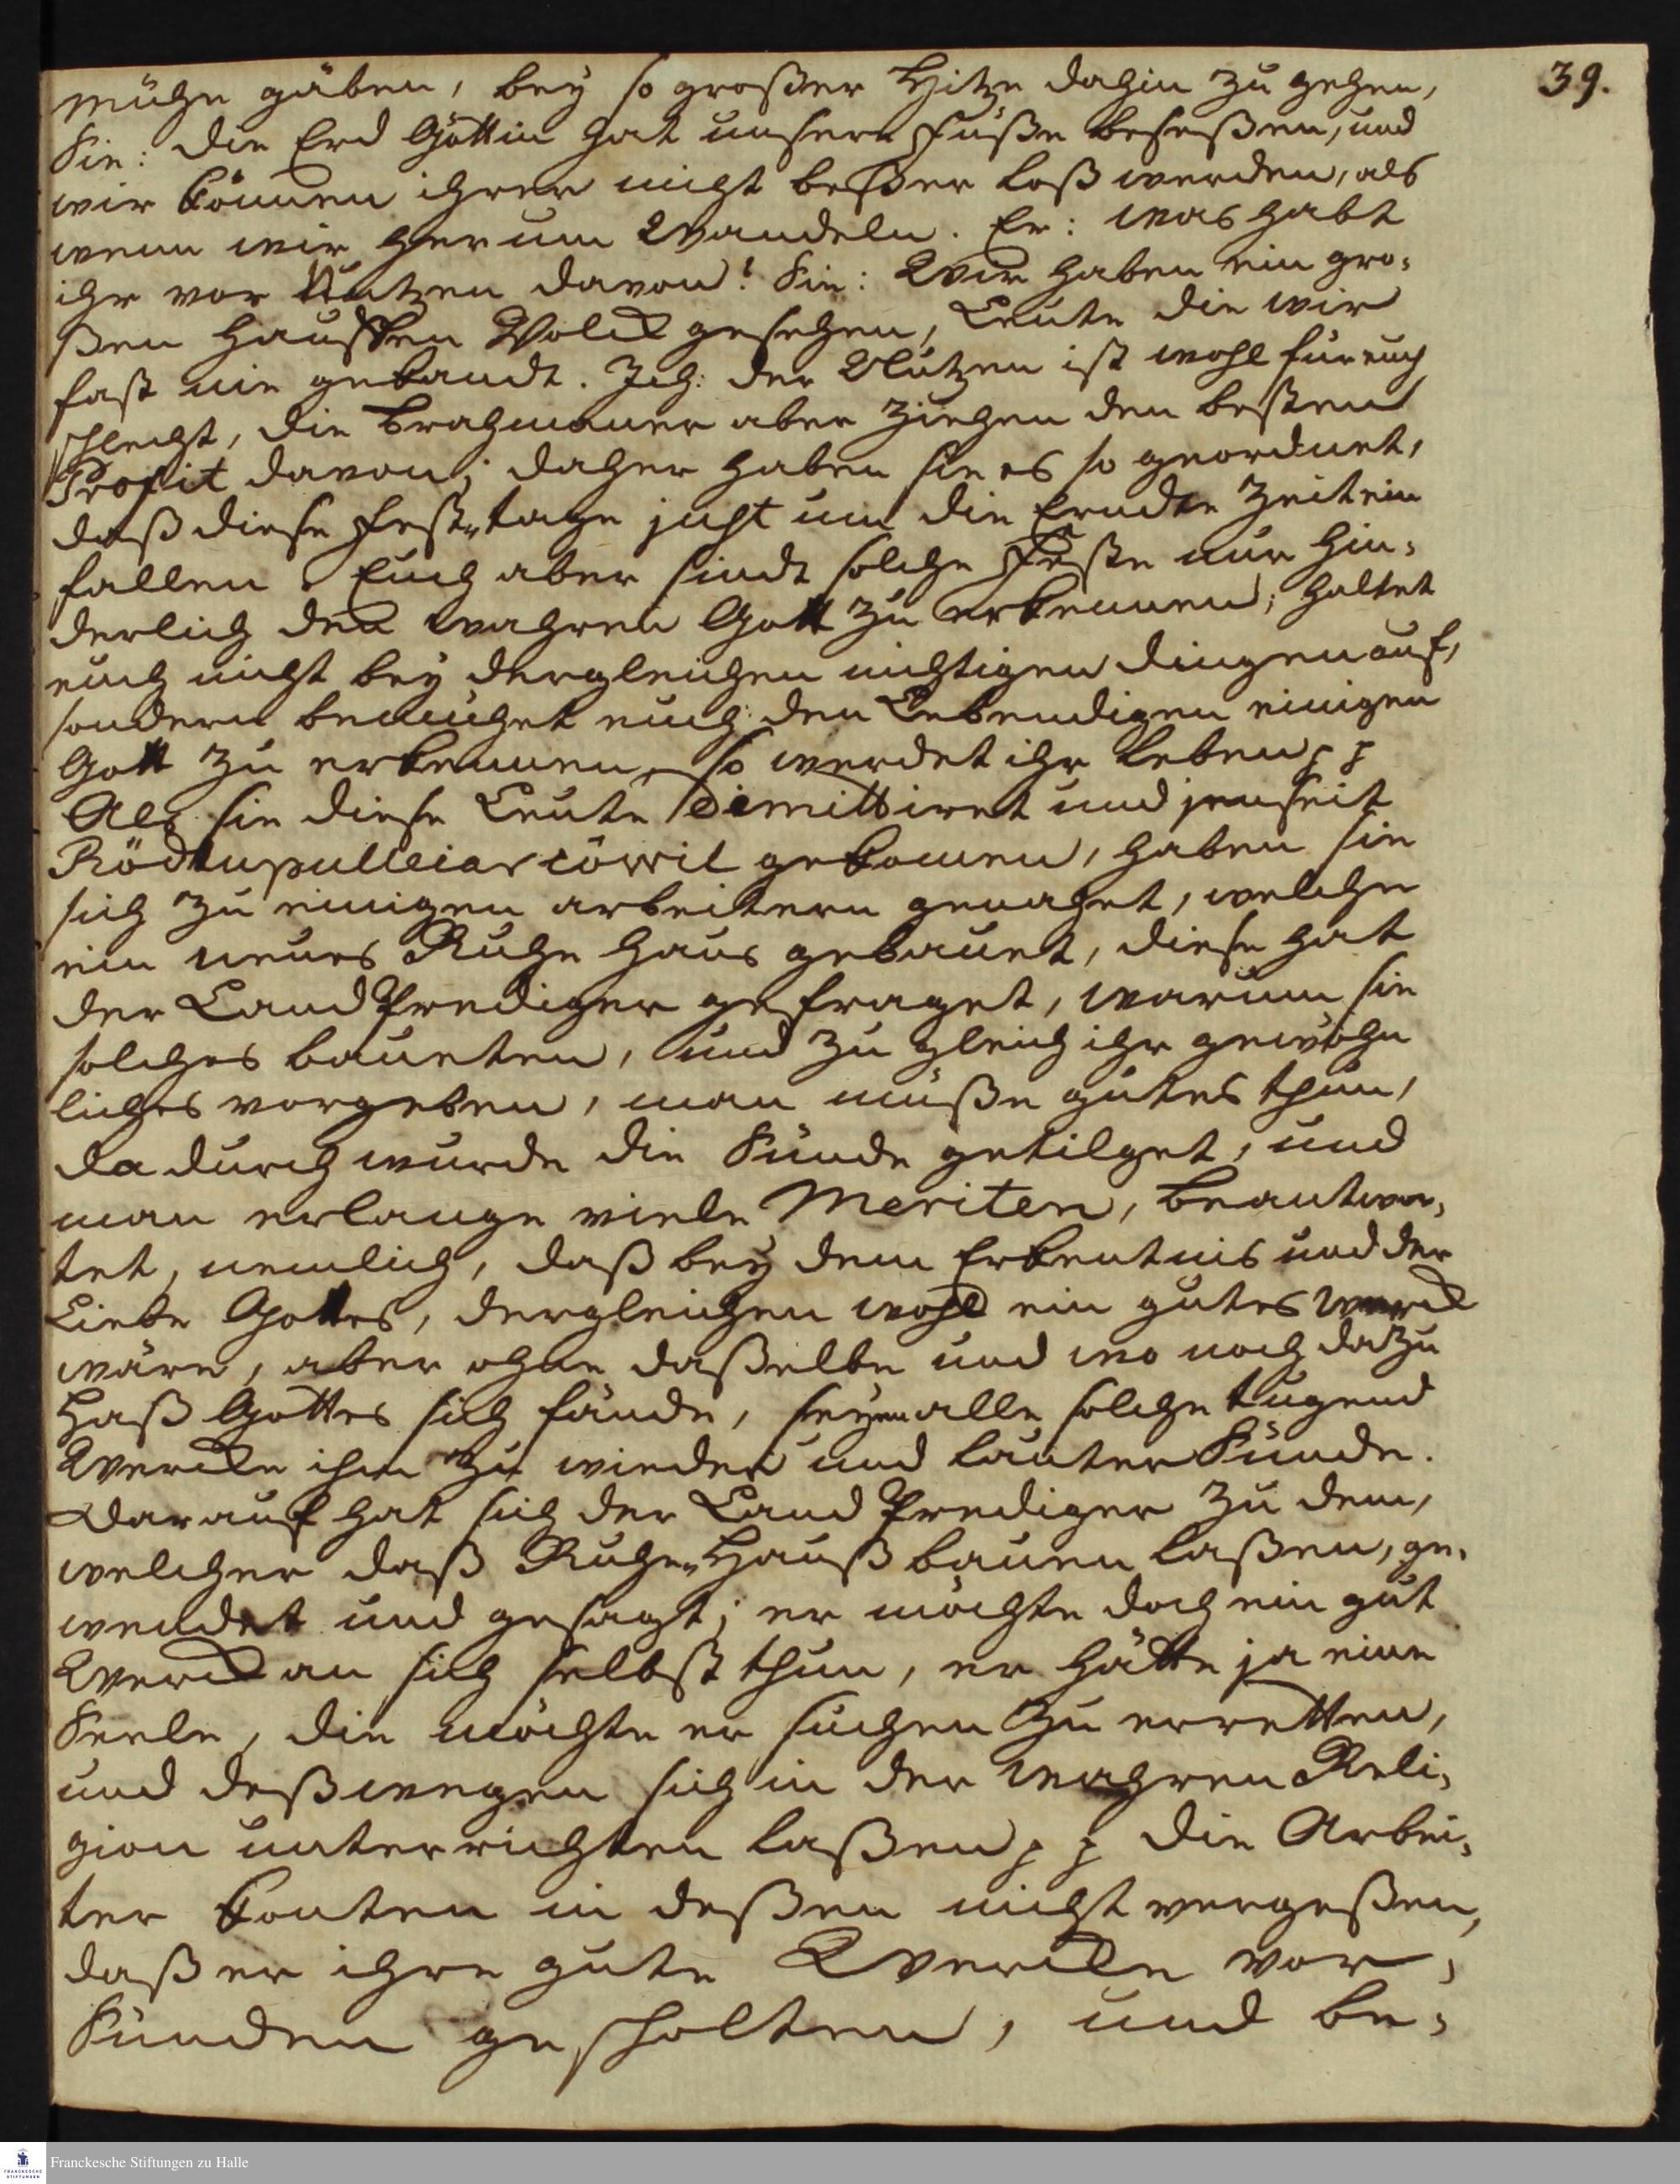 39.
mühe gäben, bey so großer Hitze dahin zu gehen,
Sie: die Erd Göttin hat unsere Füße beseßen, und
wir können ihrer nicht beßer loß werden, als
wenn wir herum Wandeln. Er: was habt
ihr vor Nutzen davon? Sie: Wir haben ein gro-
ßen Hauffen Volck gesehen, Leute die wir
fast nie gekandt. Ich: der Nutzen ist wohl für euch
schlecht, die Brahmaner aber ziehen den besten
Profit davon; daher haben sie es so geordnet,
daß diese fest-tage just um die Erndte Zeit ein
fallen. Euch aber sindt solche Feste nur hin-
derlich den wahren Gott zu erkennen; haltet
euch nicht bey dergleichen nichtigen dingen auf,
sondern bemühet euch den Lebendigen einigen
Gott zu erkennen, so werdet ihr leben p p
Als sie diese Leute dimittiret und jenseit
Ködtupulleiarcöwil gekomen, haben sie
sich zu einigen arbeitern genahet, welche
ein neues Ruhe Haus gebauet, diese hat
der Land Prediger gefraget, warum sie
solches baueten, und zu gleich ihr gewöhn
liches vorgeben, man müße gutes thun,
da durch wurde die Sünde getilget, und
man erlange viele Meriten, beantwor-
tet, nemlich, daß bey dem Erkentnis und der
Liebe Gottes, dergleichen wohl ein gutes werck
wäre, aber ohne daßelbe und wo noch dazu
Haß Gottes sich fände, seyen alle solche tugend
Wercke ihm zu wieder und lauter Sünde.
Darauf hat sich der Land Prediger zu dem,
welcher daß Ruhe-Hauß bauen laßen, ge-
wendet und gesagt; er möchte doch ein gut
Werck an sich selbst thun, er hätte ja eine
Seele, die möchte er suchen zu erretten,
und deßwegen sich in der wahren Reli-
gion unterrichten laßen p p die Arbei-
ter konten in deßen nicht vergeßen,
daß er ihre gute Wercke vor
Sünden gescholten, und be-
Franckesche Stiftungen zu Halle
FRANCKESCHE
STIFTUNGEN